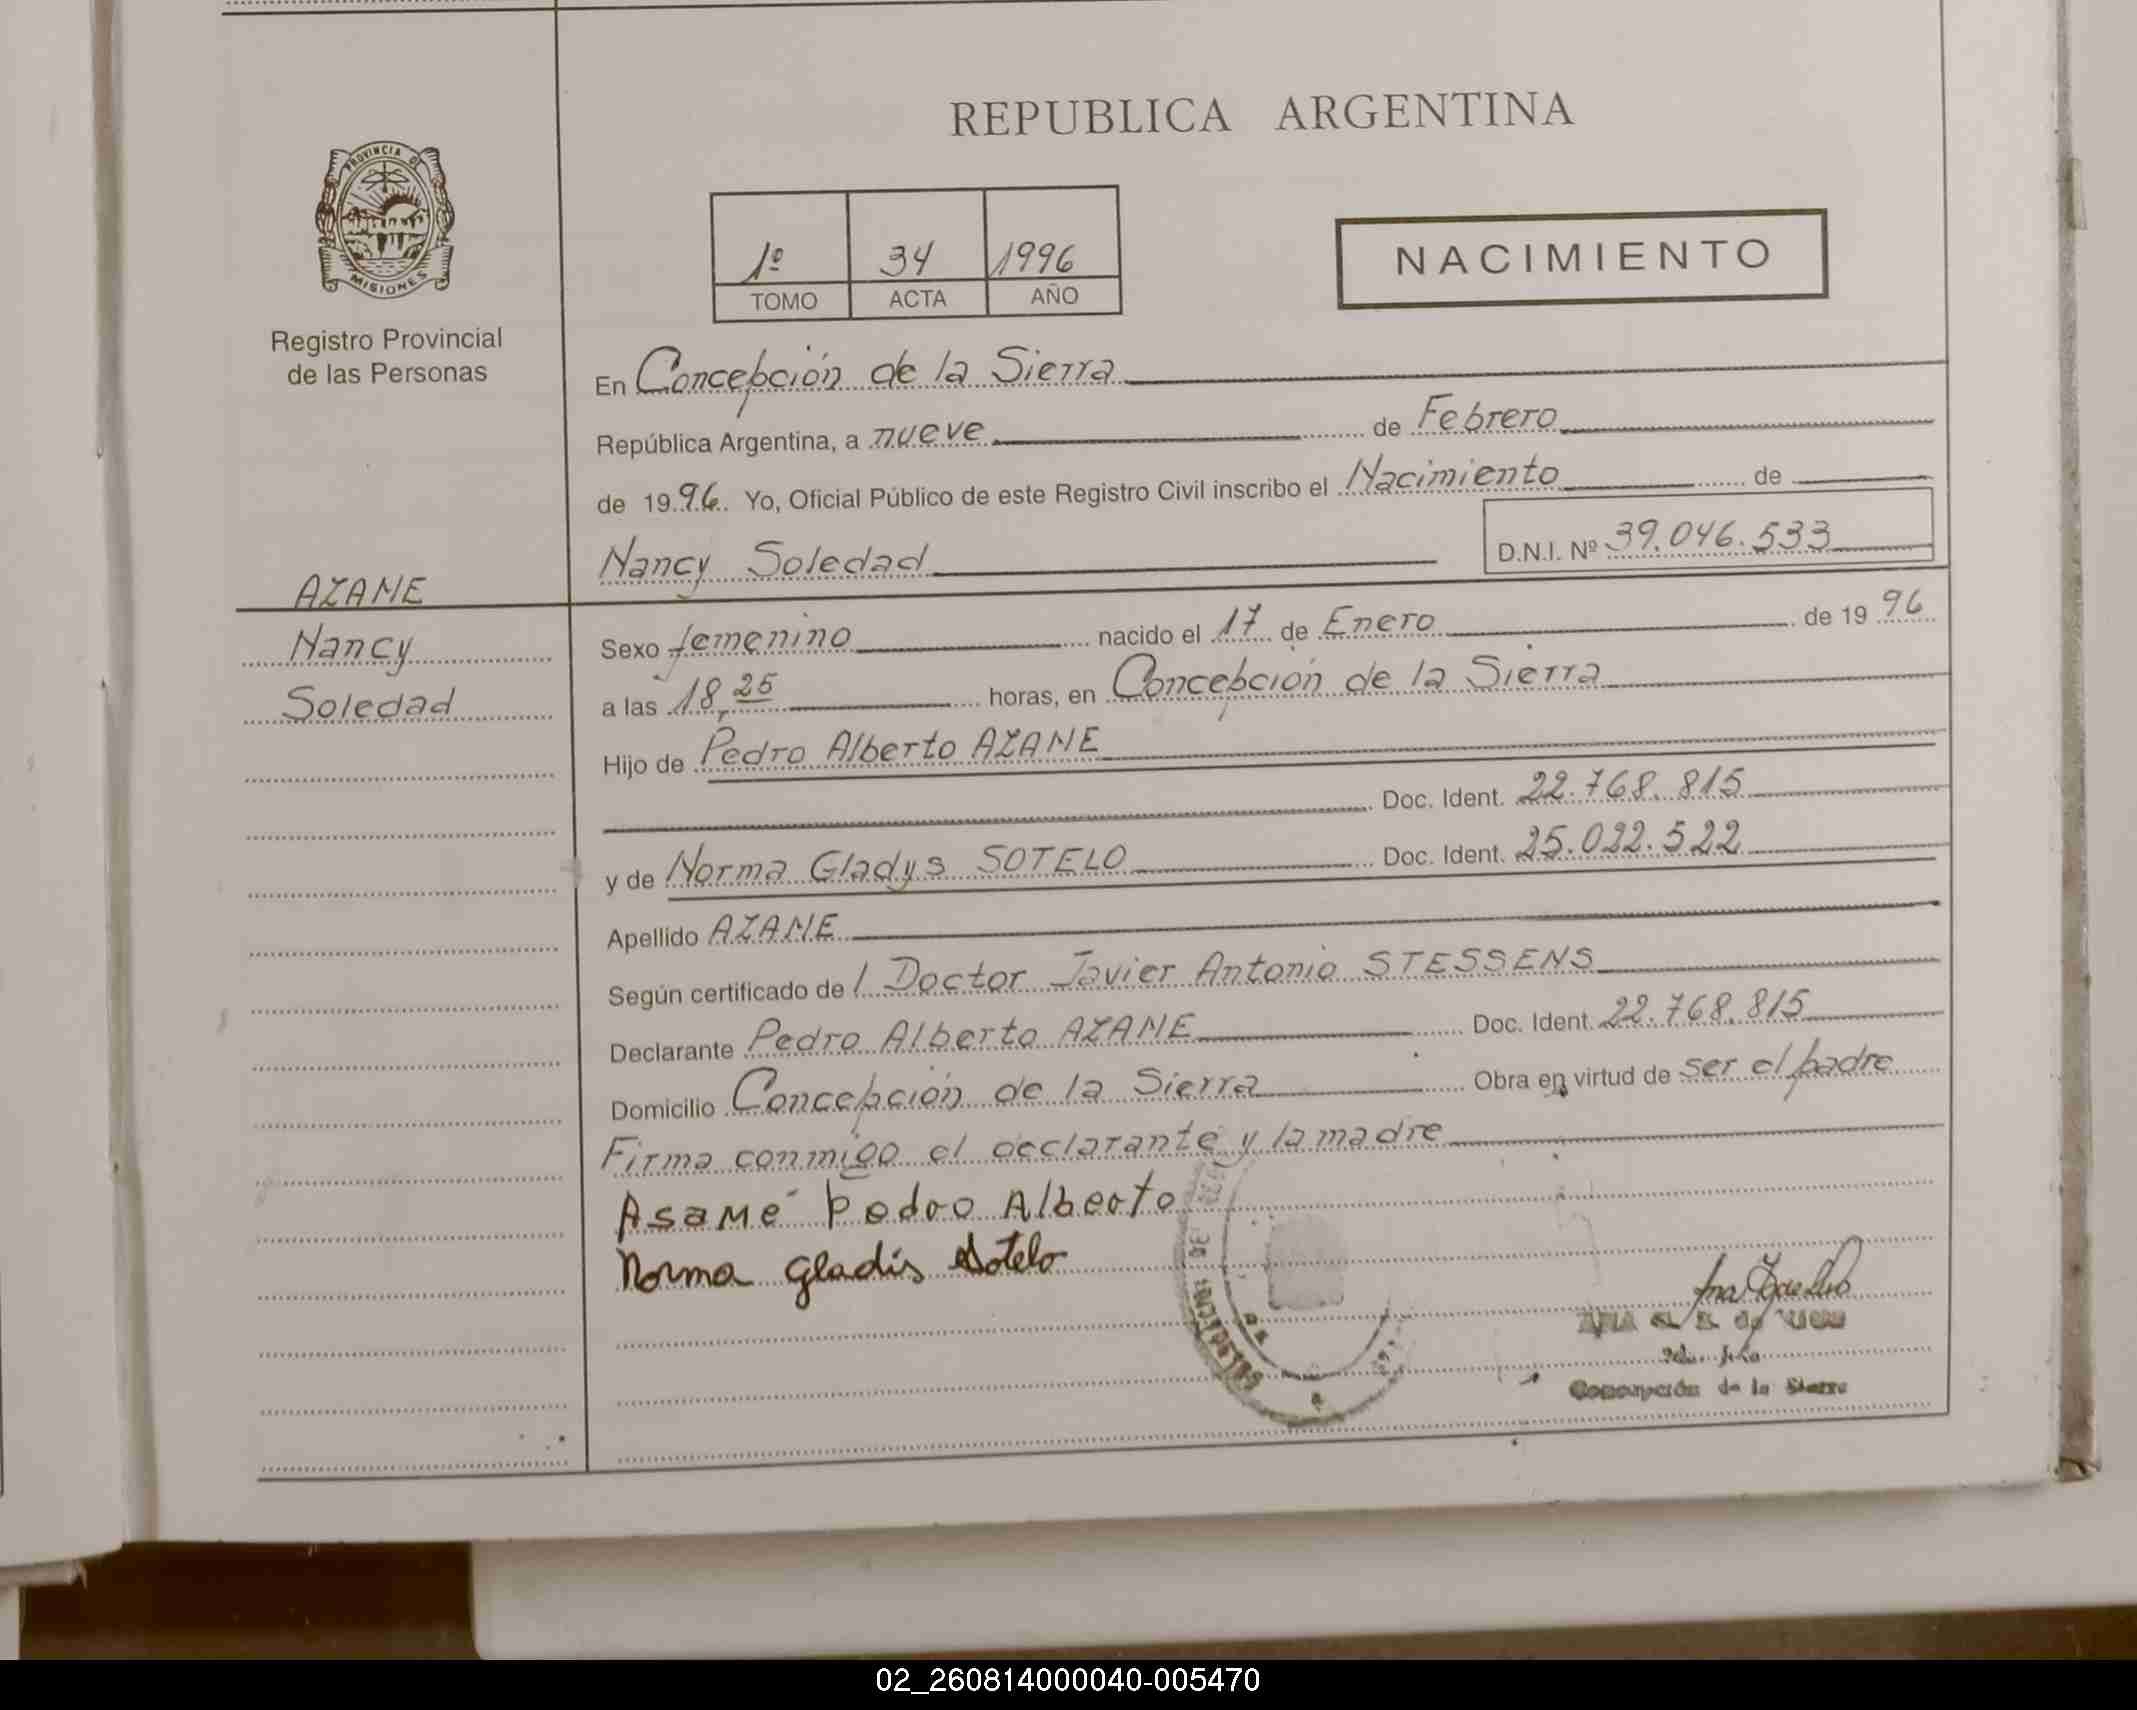 REPUBLICA ARGENTINA
PROVINCIA DE
MISIONES
Registro Provincial
de las Personas
1º 34 1996
TOMO ACTA AÑO
NACIMIENTO
En Concepción de la Sierra
República Argentina, a nueve de Febrero
de 1996. Yo, Oficial Público de este Registro Civil inscribo el Nacimiento de
Nancy Soledad D.N.I. Nº 39.046.533
AZAME
Nancy
Soledad
Sexo femenino nacido el 17 de Enero de 1996
a las 18,25 horas, en Concepción de la Sierra
Hijo de Pedro Alberto AZAME
Doc. Ident. 22.768.815
y de Norma Gladys SOTELO Doc. Ident. 25.022.522
Apellido AZAME
Según certificado del Doctor Javier Antonio STESSENS
Declarante Pedro Alberto AZAME Doc. Ident. 22.768.815
Domicilio Concepción de la Sierra Obra en virtud de ser el padre
Firma conmigo el declarante y la madre
Asame Pedro Alberto
Norma Gladis Sotelo
Concepción de la Sierra
02_260814000040-005470